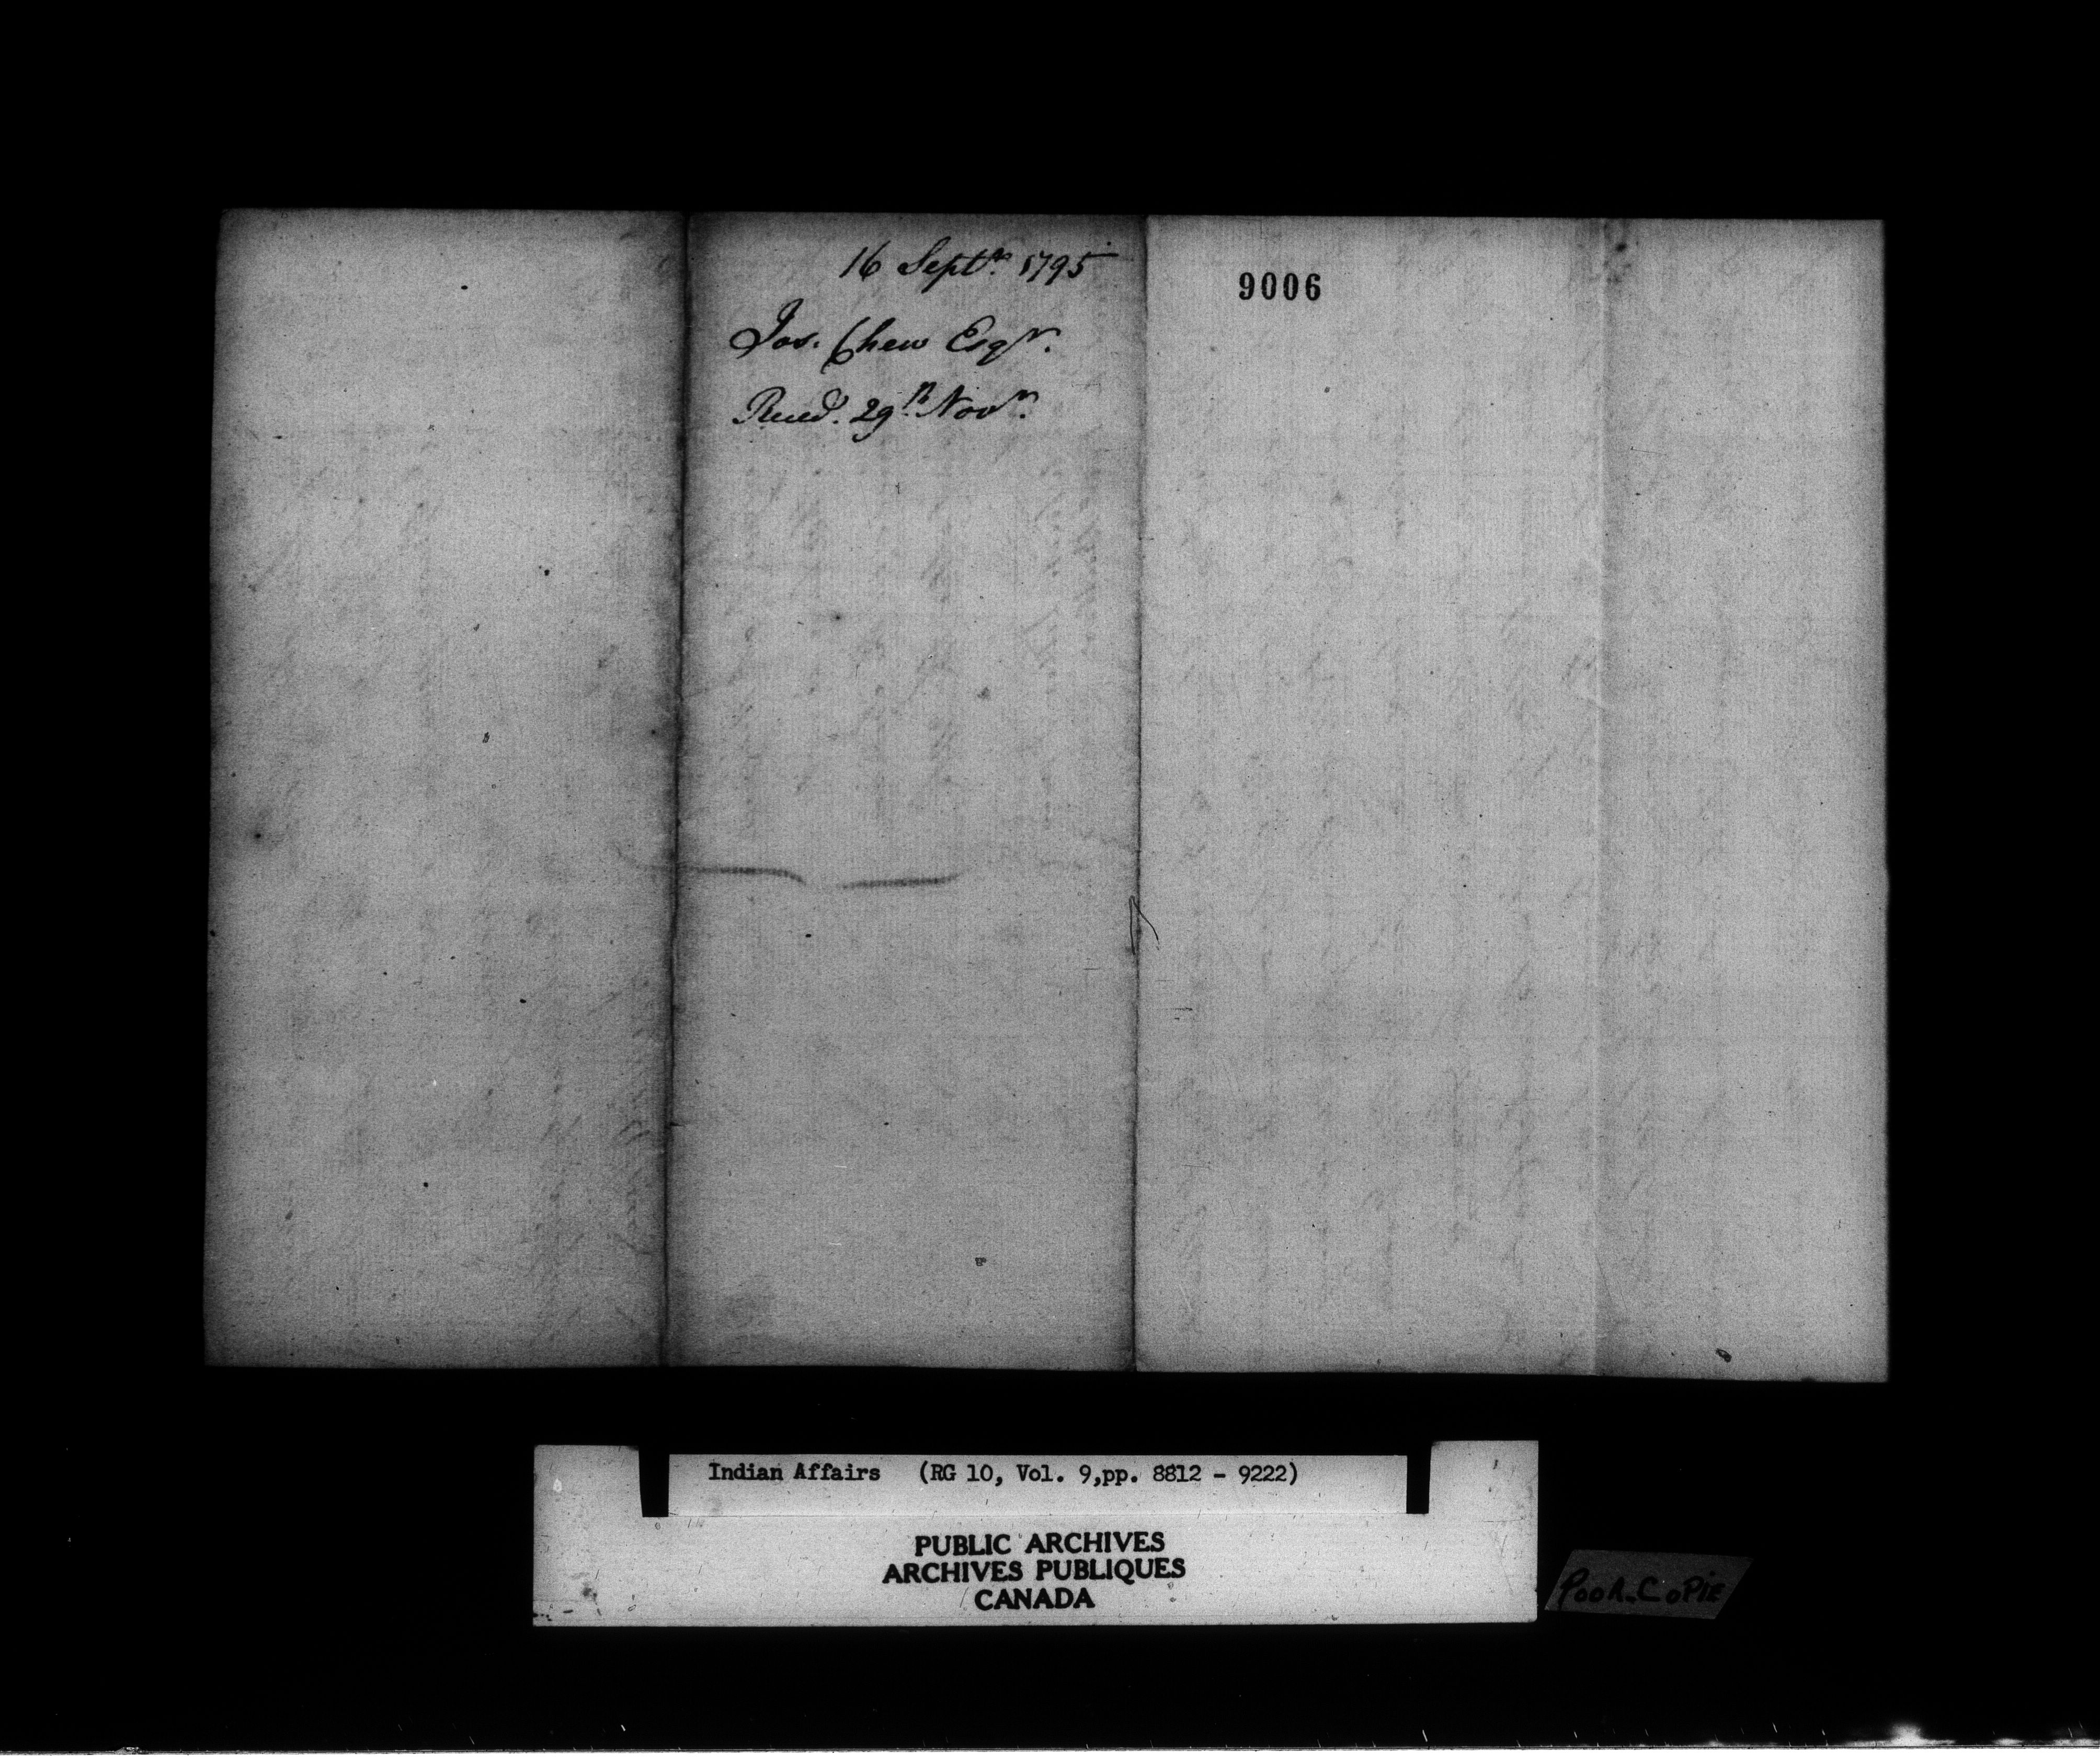 16 Septr. 1795
Jos. Chew Esqr.
Recd. 29th Novr.
9006
Indian Affairs (RG 10, Vol. 9,pp. 8812 - 9222)
PUBLIC ARCHIVES
ARCHIVES PUBLIQUES
CANADA
POOR COPIE